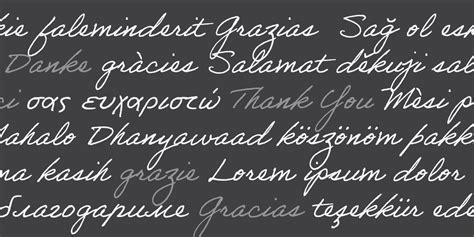 faleminderit Grazias Sağ ol
Danke gràcies Salamat děkuji
σας ευχαριστώ Thank You Mèsi
Mahalo Dhanyawaad köszönöm
kasih grazie Lorem ipsum dolor
благодариме Gracias teşekkür